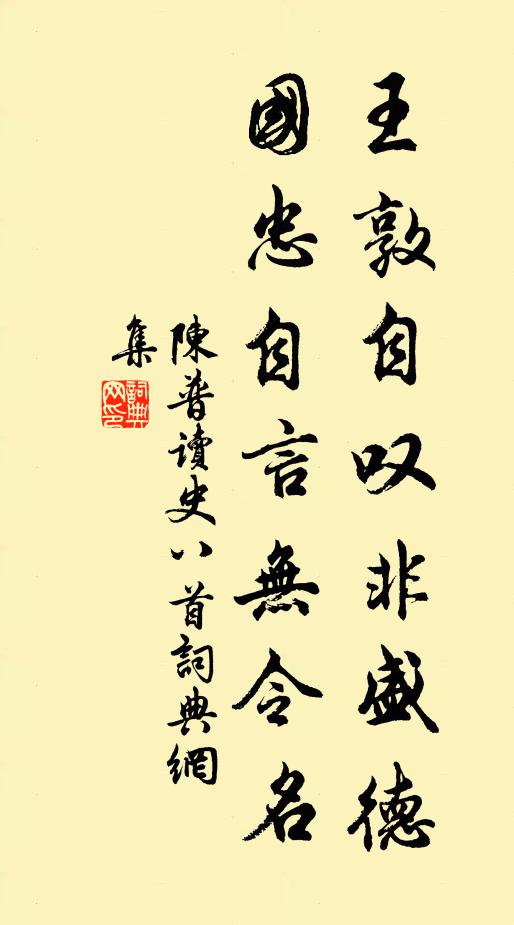 王敦自叹非盛德
國忠自言無令名
陳普讀史八首詞典網
集
詞典网印